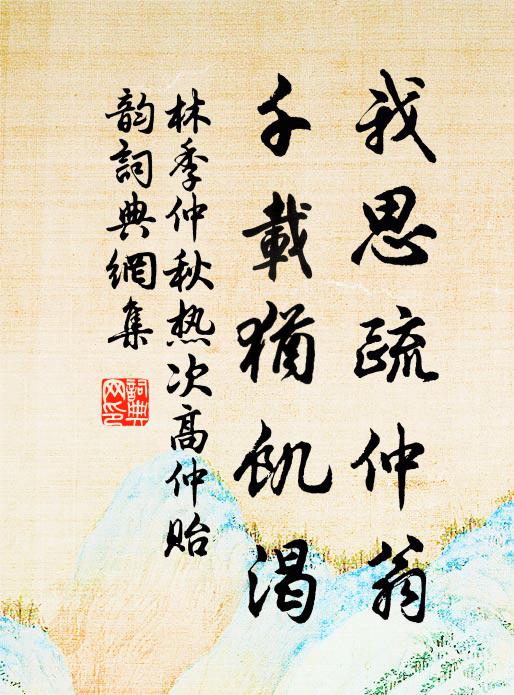 我思疏仲翁
千載猶飢渴
林季仲秋热次高仲贻
韵詞典網集
詞典
网印